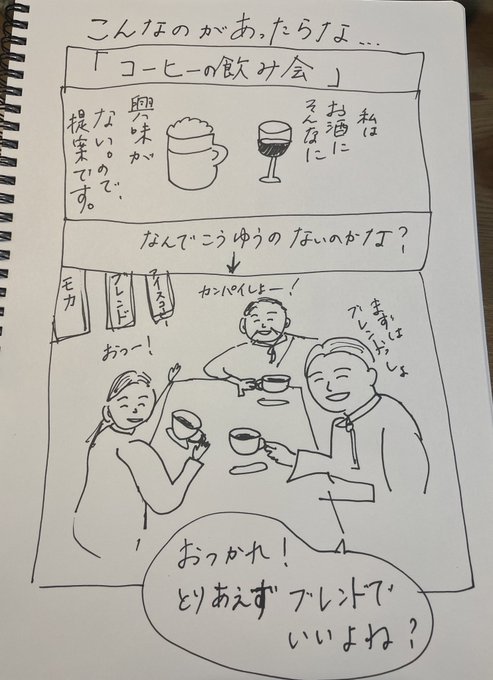 こんなのがあったらな…
「コーヒーの飲み会」
私は
お酒に
そんなに
興味が
ない。ので、
提案です。
なんでこうゆうのないのかな?
モカ
ブレンド
アイスコーヒー
カンパイしよー!
まずは
ブレンドっしょ
おっー!
おつかれ!
とりあえずブレンドで
いいよね?